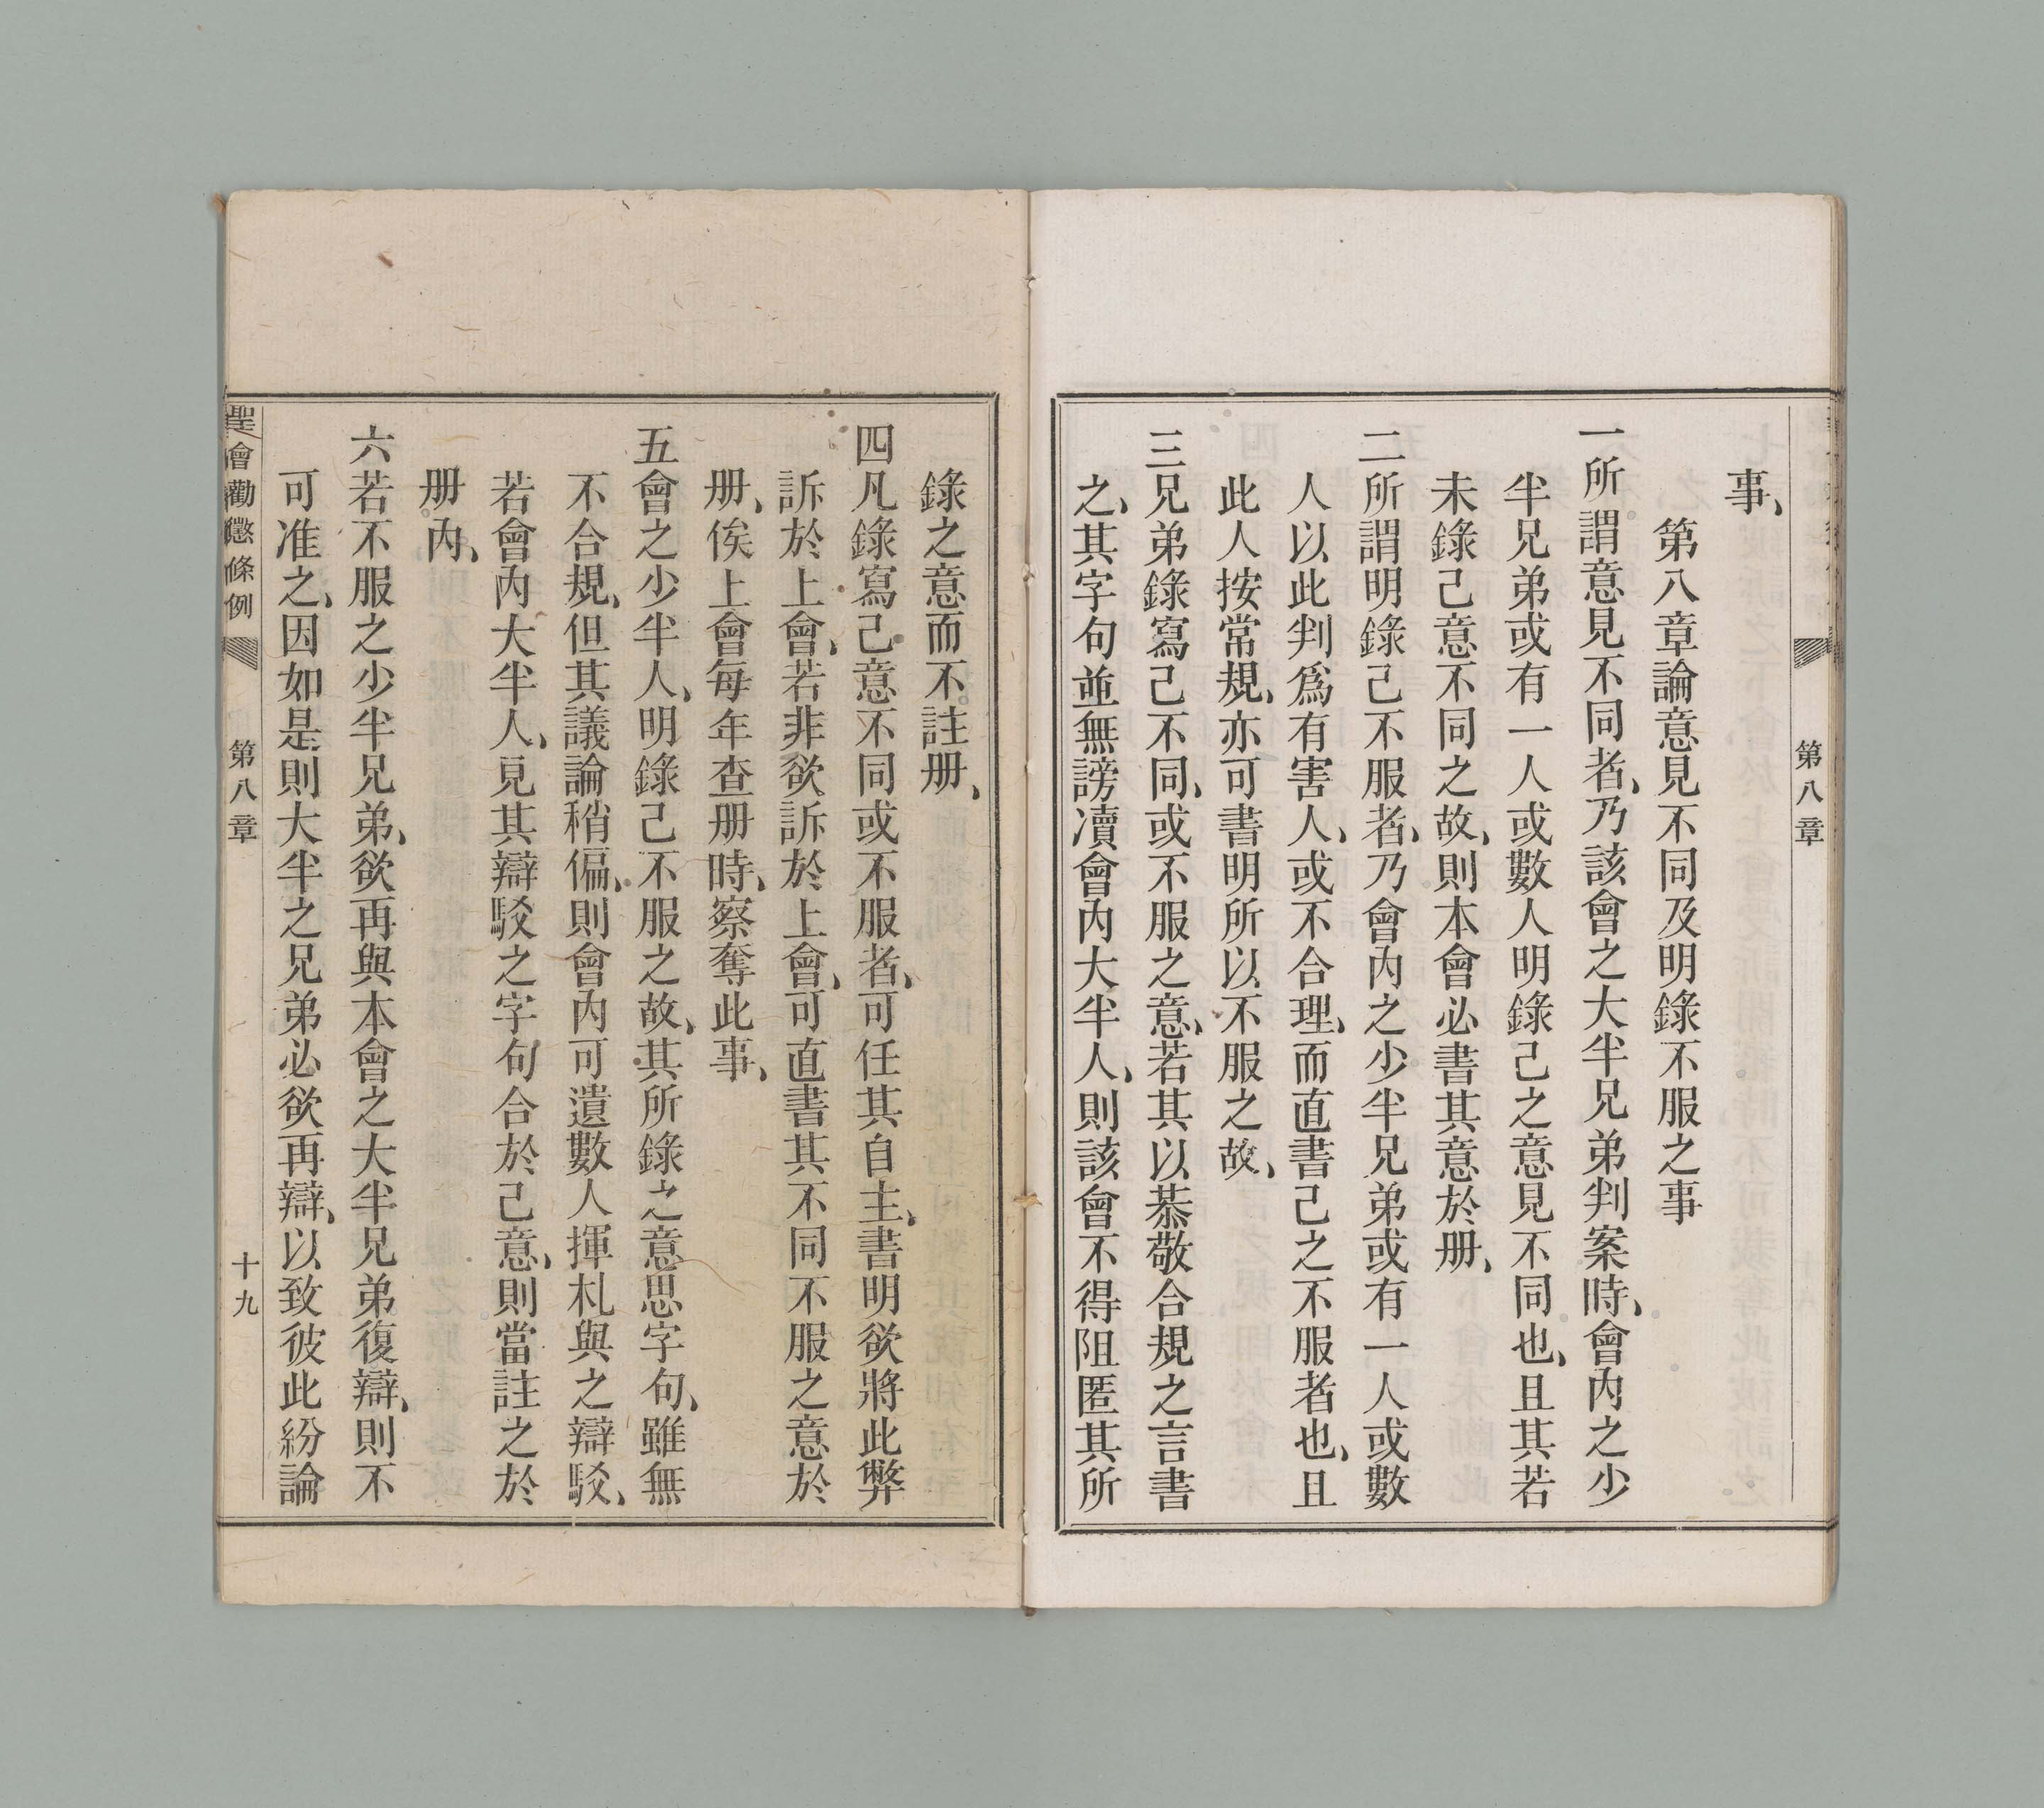 第八章
事、
第八章論意見不同及明錄不服之事
一所謂意見不同者、乃該會之大半兄弟判案時、會內之少
半兄弟或有一人或數人明錄己之意見不同也、且其若
未錄己意不同之故、則本會必書其意於册、
二所謂明錄己不服者、乃會內之少半兄弟或有一人或數
人以此判爲有害人、或不合理、而直書己之不服者也、且
此人按常規、亦可書明所以不服之故、
三兄弟錄寫己不同、或不服之意、若其以恭敬合規之言書
之、其字句並無謗凟會內大半人、則該會不得阻匿其所
錄之意而不註册、
四凡錄寫己意不同或不服者、可任其自主、書明欲將此弊
訴於上會、若非欲訴於上會、可直書其不同不服之意於
册、俟上會每年查册時、察奪此事、
五會之少半人、明錄己不服之故、其所錄之意思字句、雖無
不合規、但其議論稍偏、則會內可遺數人揮札與之辯駁、
若會內大半人、見其辯駁之字句合於己意、則當註之於
册內、
六若不服之少半兄弟、欲再與本會之大半兄弟復辯、則不
可准之、因如是、則大半之兄弟必欲再辯、以致彼此紛論
聖會勸懲條例 第八章 十九